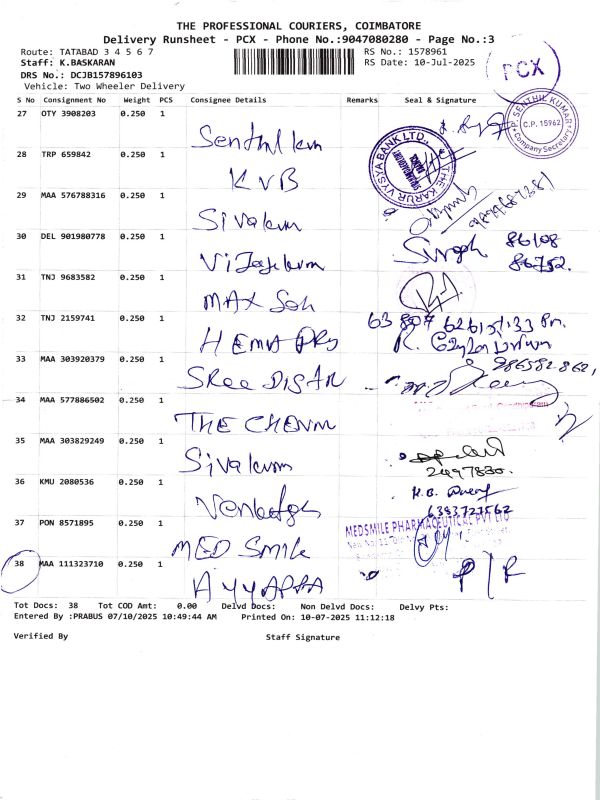 THE PROFESSIONAL COURIERS, COIMBATORE
Delivery Runsheet - PCX - Phone No.:9047080280 - Page No.:3
Route: TATABAD 3 4 5 6 7
RS No.: 1578961
Staff: K.BASKARAN
RS Date: 10-Jul-2025
DRS No.: DCJB157896103
Vehicle: Two Wheeler Delivery
PCX
S No Consignment No Weight PCS Consignee Details Remarks Seal & Signature
27 OTY 3908203 0.250 1
P. SENTHIL KUMAR
C.P. 15962
Company Secretary
28 TRP 659842 0.250 1
KVB
THE KARUR VYSYA BANK LTD.
29 MAA 576788316 0.250 1
Sivakum
30 DEL 901980778 0.250 1
86108
86752.
31 TNJ 9683582 0.250 1
MAX Soh
32 TNJ 2159741 0.250 1
HEMA
33 MAA 303920379 0.250 1
SREE
34 MAA 577886502 0.250 1
THE
35 MAA 303829249 0.250 1
Sivakum
2497830.
36 KMU 2080536 0.250 1
6383721562
37 PON 8571895 0.250 1
MED Smile
MEDSMILE PHARMACEUTICAL PVT LTD
38 MAA 111323710 0.250 1
AYYAPPA
Tot Docs: 38 Tot COD Amt: 0.00 Delvd Docs: Non Delvd Docs: Delvy Pts:
Entered By :PRABUS 07/10/2025 10:49:44 AM Printed On: 10-07-2025 11:12:18
Verified By Staff Signature